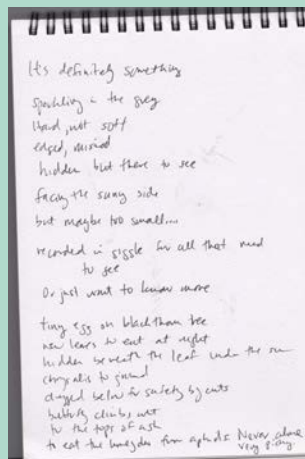 It's definitely something
sparkling in the grey
Hard, not soft
edged, missed
hidden but there to see
facing the sunny side
but maybe too small....
recorded in giggle for all that need
to see
Or just want to know more
tiny egg on blackthorn tree
new leaves to eat at night
hidden beneath the leaf under the sun
chrysalis to ground
dragged below for safety by ants
butterfly climbs out
to the tops of ash
to eat the honeydew from aphids. Never alone